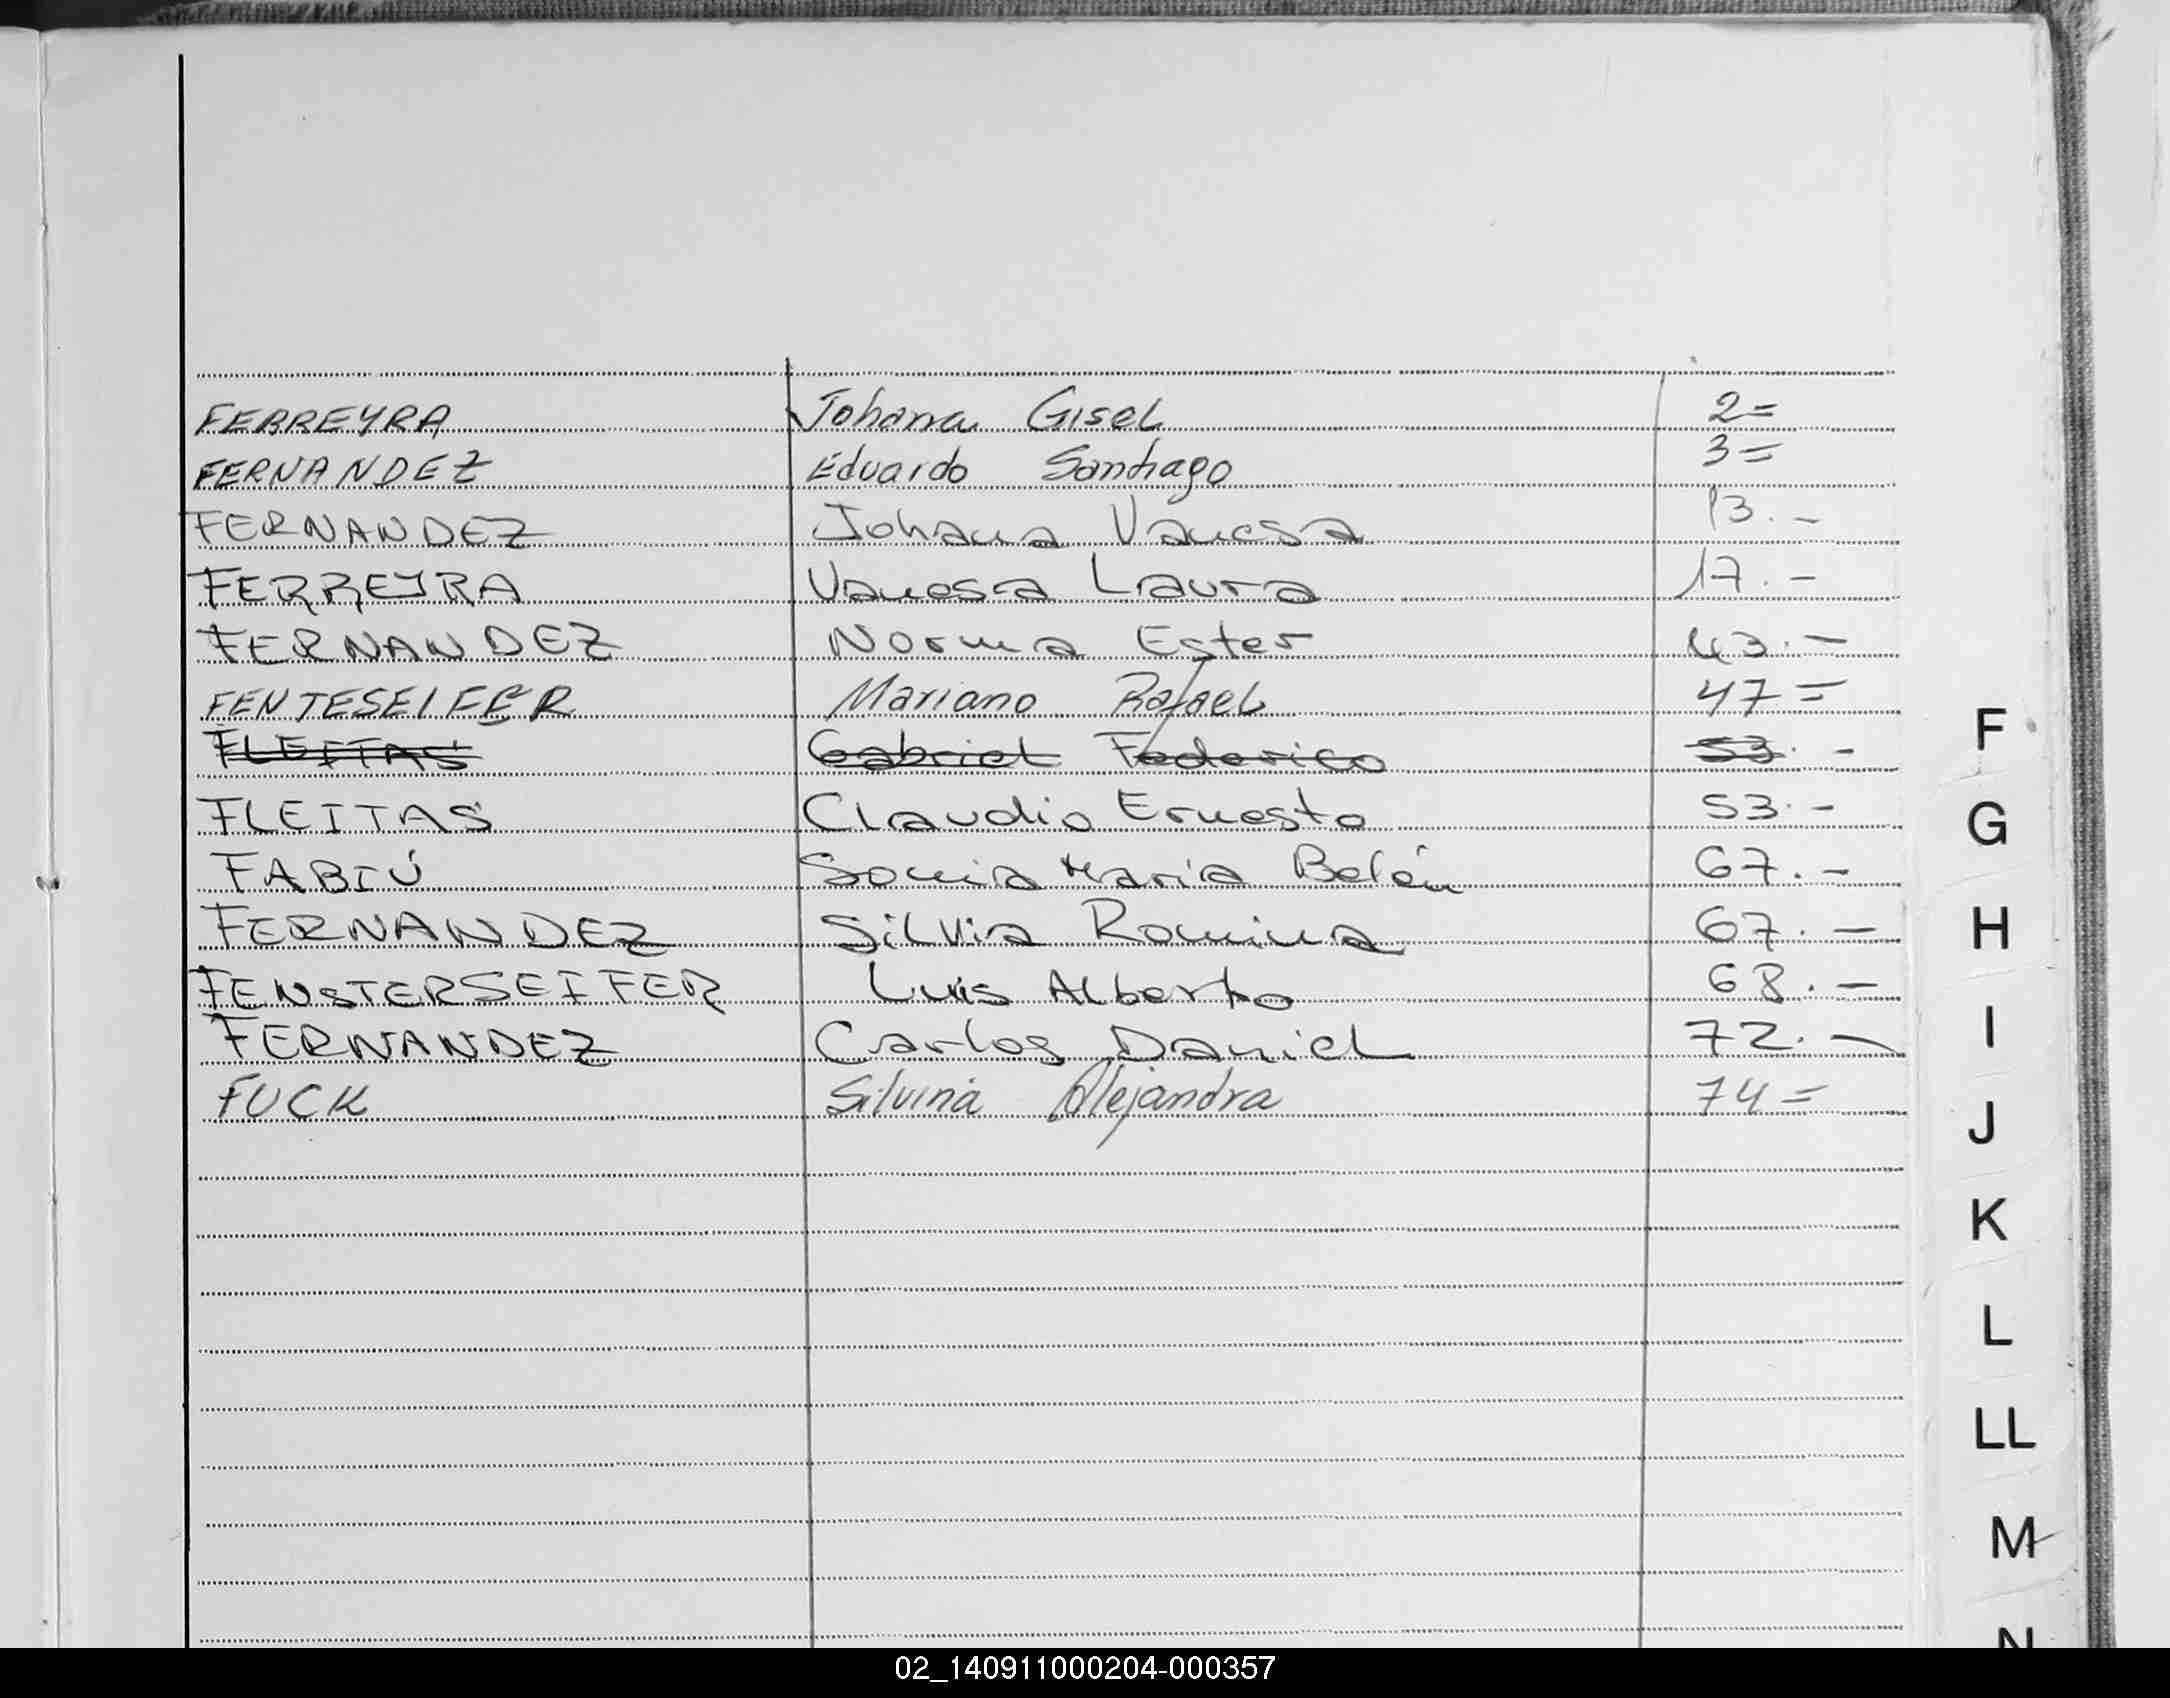 FERREYRA Johana Gisel 2=
FERNANDEZ Eduardo Santiago 3=
FERNANDEZ Johana Vanesa 13.-
FERREYRA Vanesa Laura 17.-
FERNANDEZ Norma Ester 43.-
FENTESEIFER Mariano Rafael 47=
FLEITAS Gabriel Federico 53.-
FLEITAS Claudio Ernesto 53.-
FABIÚ Sonia María Belén 67.-
FERNANDEZ Silvia Romina 67.-
FENSTERSEIFER Luis Alberto 68.-
FERNANDEZ Carlos Daniel 72.-
FUCK Silvina Alejandra 74=
F
G
H
I
J
K
L
LL
M
N
02_140911000204-000357